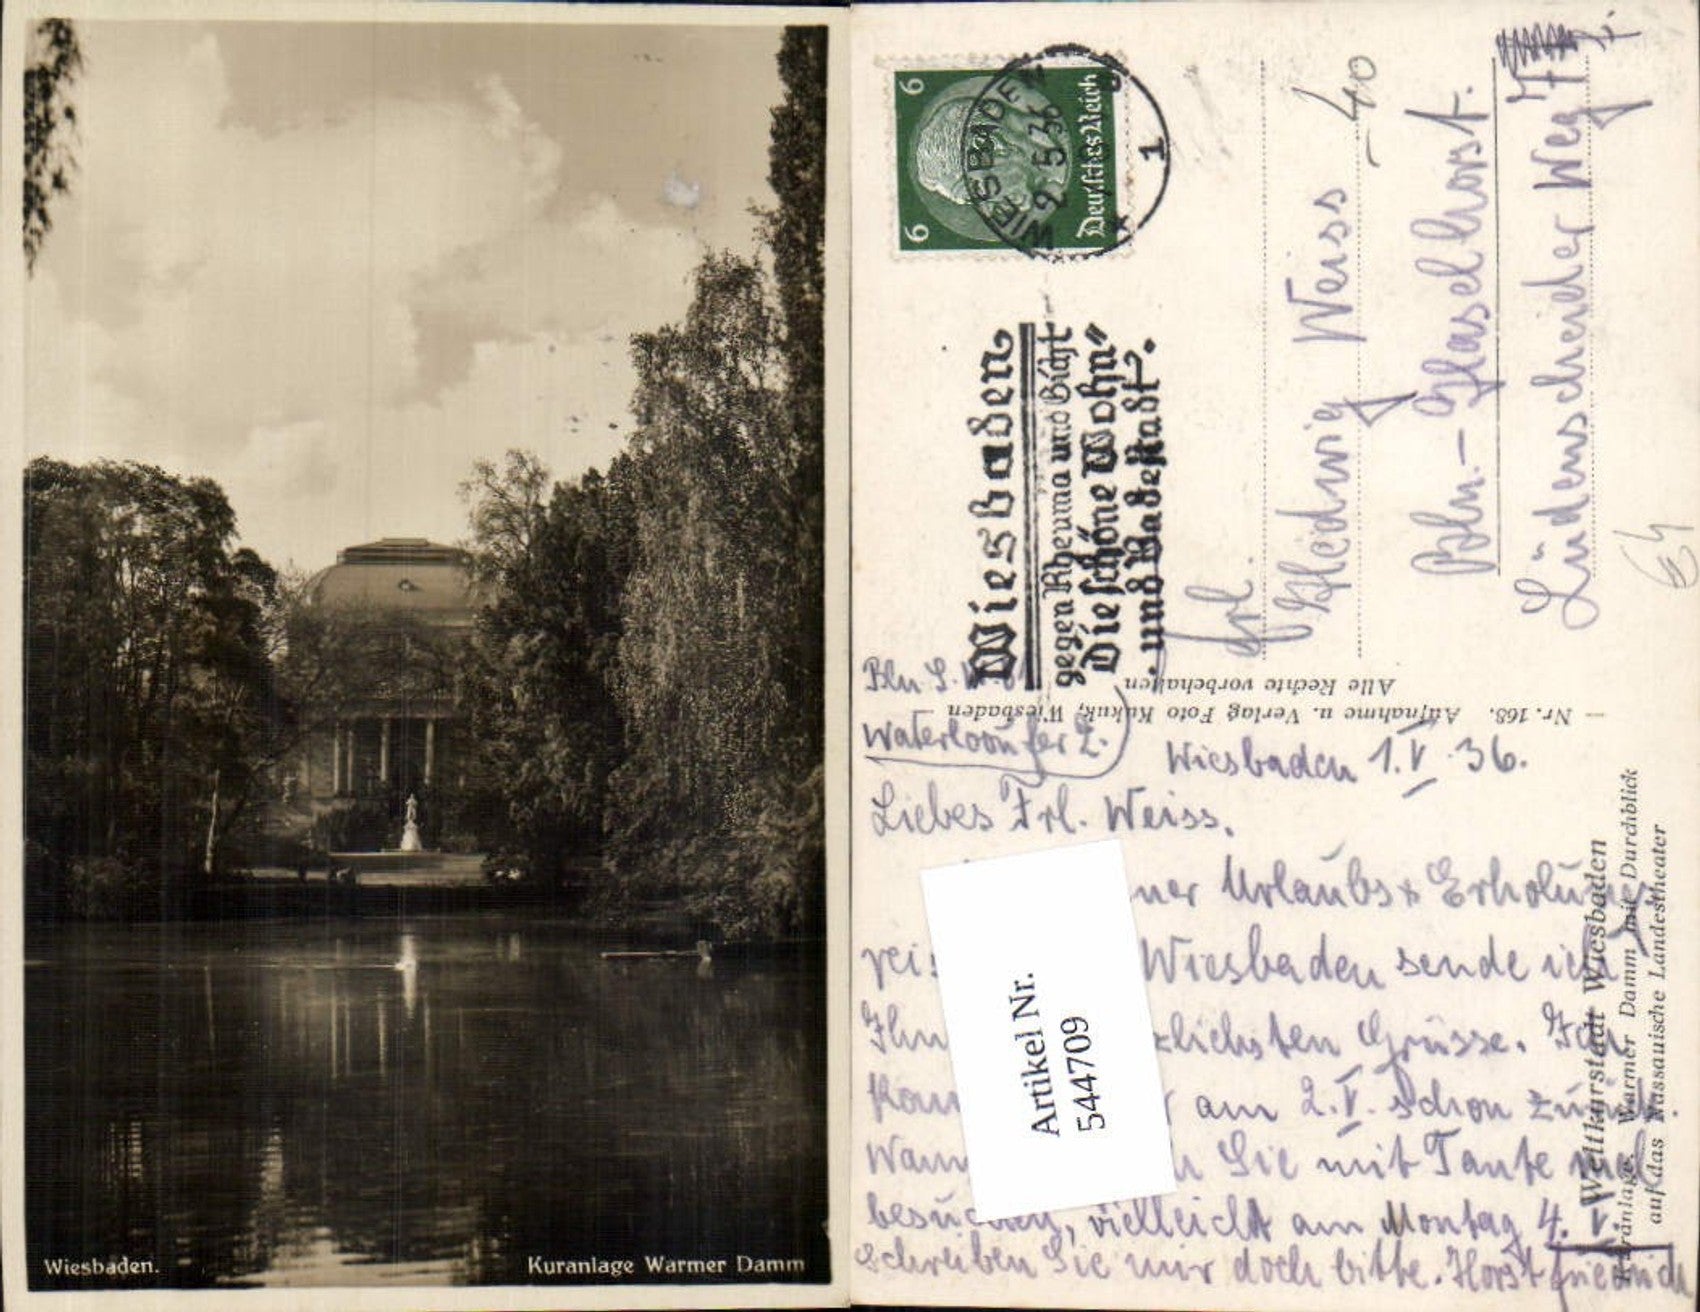 Wiesbaden.
Kuranlage Warmer Damm
6
6
Deutsches Reich
WIESBADEN
2.5.36
1
Wiesbaden
gegen Rheuma und Gicht
Die schöne Wohn-
und Badestadt.
Frl.
Hedwig Weiss
Bln.-Haselhorst.
Lüdenscheider Weg
40
Alle Rechte vorbehalten
Nr. 168. Aufnahme u. Verlag Foto Kukuk, Wiesbaden
Weltkurstadt Wiesbaden
Kuranlage Warmer Damm mit Durchblick
auf das Nassauische Landestheater
Bln S.W.
Waterlooufer 2.
Wiesbaden 1.V.36.
Liebes Frl. Weiss,
ner Urlaubs & Erholungs
reis Wiesbaden sende ich
Ihn zlichsten Grüsse. Ich
kom am 2.V. schon zurück.
Wann n Sie mit Tante mal
besuchen, vielleicht am Montag 4.V.
Schreiben Sie mir doch bitte. Horst Friedrich
Artikel Nr.
544709